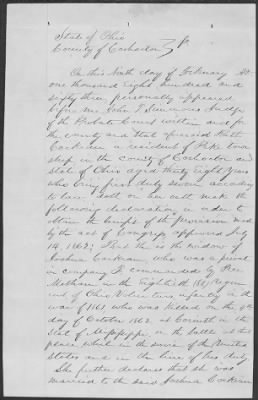 State of Ohio
County of Coshocton } ss
On this Ninth day of February AD
one thousand eight hundred and
sixty three personally appeared
before me John T Simmons Judge
of the Probate Court within and for
the county and that aforesaid Ruth
Cochran a resident of Pike town
ship in the county of Coshocton and
state of Ohio aged thirty eight years
who being first duly sworn according
to law doth on her oath make the
following declaration in order to
obtain the benefit of the provision made
by the act of Congress approved July
14, 1862; That she is the widow of
Joshua Cochran, who was a private
in company F commanded by
in the Eightieth (80) Regim
ent of Ohio Volunteer Infantry in the
war of 1861 who was killed on the 4th
day of October 1862 at Corinth in the
state of Mississippi, in the battle at that
place, while in the service of the United
States and in the line of his duty.
She further declares that she was
married to the said Joshua Cochran